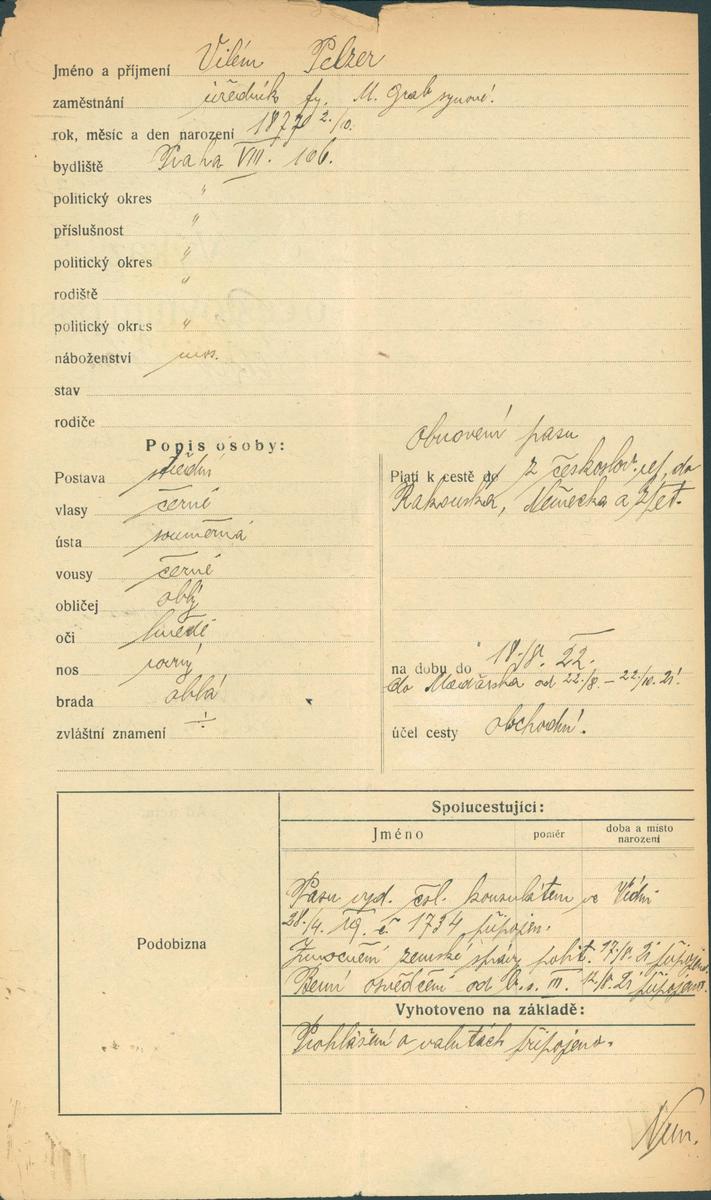 Jméno a příjmení Vilém Pelzer
zaměstnání úředník fy. M. Grab synové.
rok, měsíc a den narození 1877 2./10.
bydliště Praha VIII. 106.
politický okres "
příslušnost "
politický okres "
rodiště "
politický okres "
náboženství mos.
stav
rodiče
Popis osoby:
Postava střední
vlasy černé
ústa souměrná
vousy černé
obličej oblý
oči hnědé
nos rovný
brada oblá
zvláštní znamení ÷
Obnovení pasu
Platí k cestě do z českoslov. rep. do
Rakouska, Německa a zpět.
na dobu do 18./8. 22.
do Maďarska od 22./8. – 22./10. 21.
účel cesty obchodní.
Podobizna
Spolucestující:
Jméno poměr doba a místo
narození
Pasu vyd. čsl. konsulátem ve Vídni
28./4. 19. č. 1734 připojen.
Zmocnění zemské správy polit. 17./8. 21 připojeno.
Berní osvědčení od b. s. III. 12./8. 21 připojeno.
Vyhotoveno na základě:
Prohlášení o valutách připojeno.